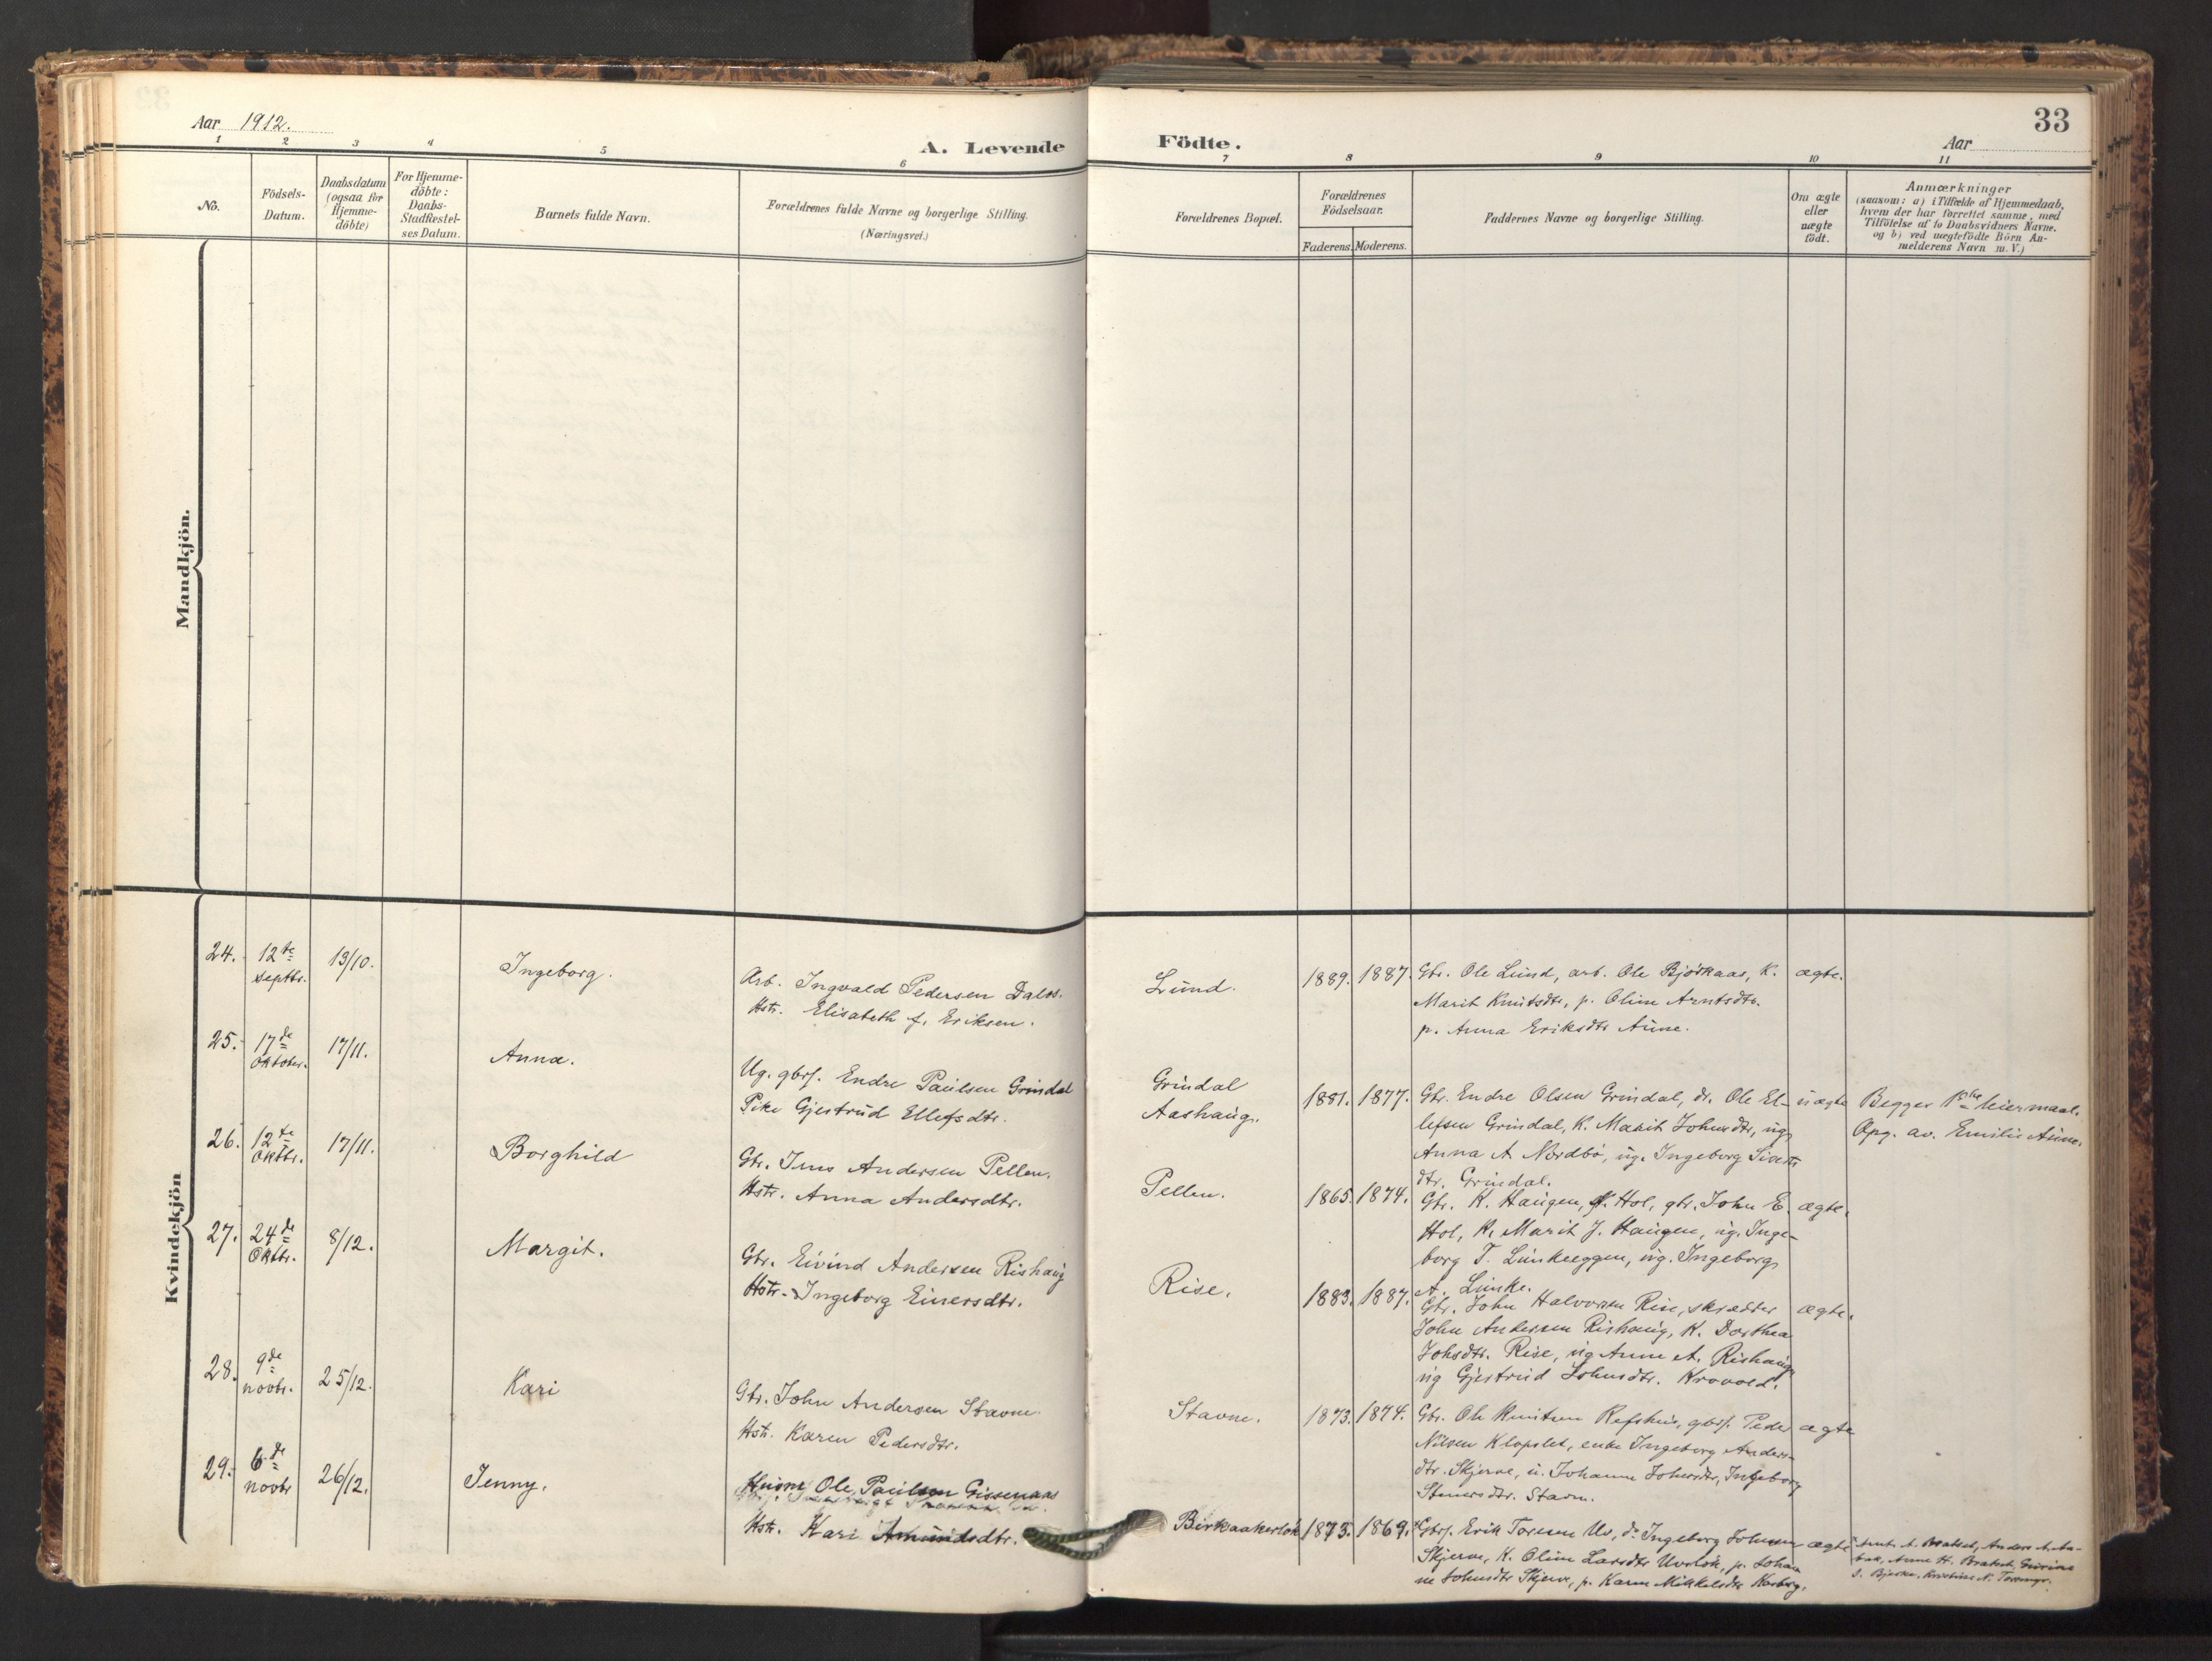 Aar 1912.
A. Levende
Födte.
Aar
33
1 2 3 4 5 6 7 8 9 10 11
No.
Födsels-
Datum.
Daabsdatum
(ogsaa for
Hjemme-
döbte)
For Hjemme-
döbte:
Daabs-
Stadfæstel-
ses Datum.
Barnets fulde Navn.
Forældrenes fulde Navne og borgerlige Stilling.
(Næringsvei.)
Forældrenes Bopæl.
Forældrenes
Födselsaar.
Faderens. Moderens.
Faddernes Navne og borgerlige Stilling.
Om ægte
eller
uægte
födt.
Anmærkninger
(saasom: a) i Tilfælde af Hjemmedaab,
hvem der har forrettet samme, med
Tilföielse af to Daabsvidners Navne.
og b) ved uægtefödte Börn An-
melderens Navn m. V.)
Mandkjön.
Kvindekjön
24. 12te septbr. 13/10. Ingeborg.
Arb. Ingvald Pedersen Dalos.
Hstr. Elisabeth f. Eriksen.
Lund. 1889. 1887.
Gbr. Ole Lund, arb. Ole Bjørkaas, K.
Marit Knutsdtr, p. Oline Arntsdtr.
p. Anna Eriksdtr Aune.
ægte.
25. 17de Oktober. 17/11. Anna.
Ug. gbrs. Endre Paulsen Grindal
Pike Gjertrud Ellefsdtr.
Grindal
Aashaug. 1881. 1877.
Gbr. Endre Olsen Grindal, do. Ole El-
lefsen Grindal, K. Marit Johnsdtr, ug.
Anna A Nordbø, ug. Ingeborg Siverts
dtr. Grindal.
uægte
Begges 1ste leiermaal.
Opg. av. Emilie Aune.
26. 12te Oktbr. 17/11. Borghild
Gbr. Jens Andersen Pellen.
Hstr. Anna Andersdtr.
Pellen. 1865. 1874.
Gbr. K. Haugen, Hol, gbr. John E.
Hol, K. Marit J. Haugen, ug. Inge-
borg T. Lunkeeggen, ug. Ingeborg
A. Lunke.
ægte.
27. 24de Oktbr. 8/12. Margit.
Gbr. Eivind Andersen Rishaug
Hstr. Ingeborg Einersdtr.
Rise. 1883. 1887.
Gbr. John Halvorsen Rise, skrædder
John Andersen Rishaug, K. Dorthea
Johsdtr. Rise, ug Anne A. Rishaug
ug Gjertrud Johnsdtr. Krovold.
ægte.
28. 9de novbr. 25/12. Kari
Gbr. John Andersen Stavne.
Hstr. Karen Pedersdtr.
Stavne. 1873. 1874.
Gbr. Ole Knutsen Refshus, gbrs. Peder
Nilsen Klopslet, enke Ingeborg Anders-
dtr. Skjerve, u. Johanne Johnsdtr, Ingeborg
Steners dtr. Stavn.
ægte
29. 6de novbr 26/12. Jenny.
Husm Ole Paulsen Gissenaas
Hstr. Kari Amundsdtr.
Birkaakerløk 1873. 1869.
Gbrs. Erik Toresen Uv, do Ingeborg Johnsen
Skjerve, K. Oline Larsdtr Uvsløk, p. Johan
ne Johnsdtr Skjerve, p. Karen Mikkelsdtr Kosberg.
ægte
Arnt A. Bratset, Anders A. Aa-
bak, Anne H. Bratset, Guriane
S. Bjerke, Kristine N. Toremyr.